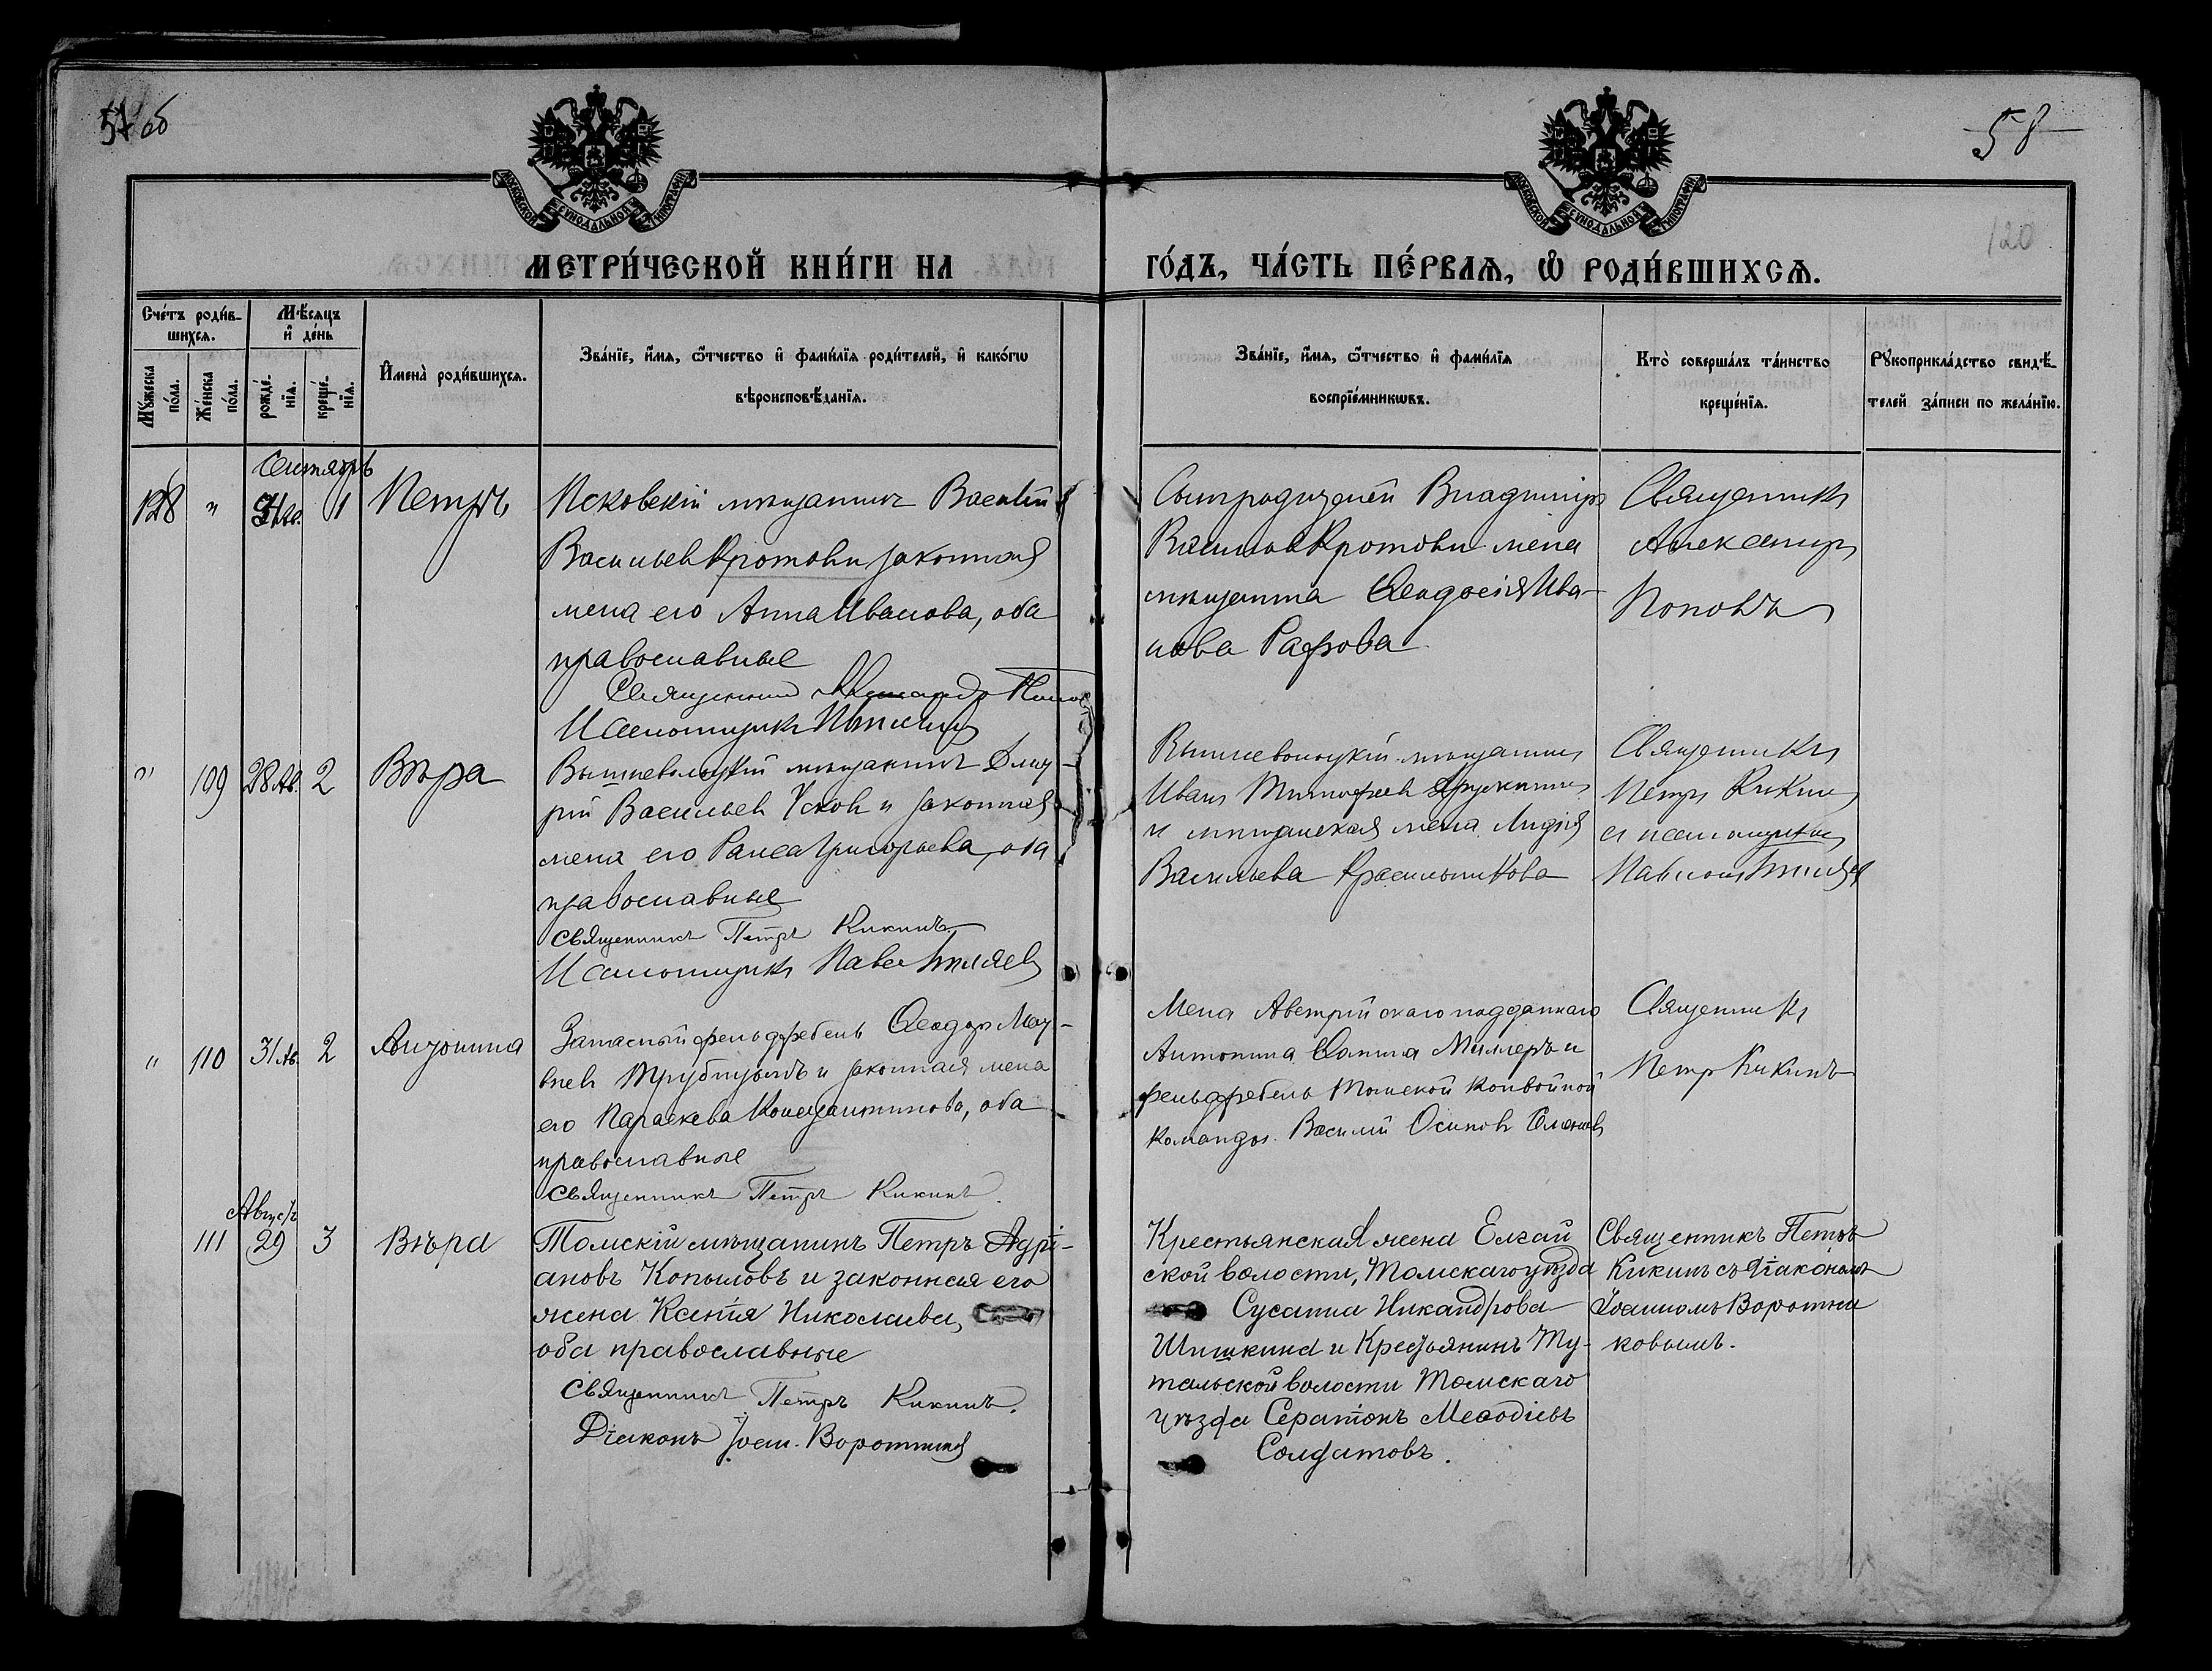 57 об
58
120
МОСКОВСКОЙ СѴНОДАЛЬНОЙ ТИПОГРАФІИ
МОСКОВСКОЙ СѴНОДАЛЬНОЙ ТИПОГРАФІИ
МЕТРИ́ЧЕСКОЙ КНИ́ГИ НА
ГО́ДЪ, ЧА́СТЬ ПЕ́РВАѦ, Ѽ РОДИ́ВШИХСѦ.
Сче́тъ роди́в-
шихсѧ.
Мѣ́сѧцъ
и҆ де́нь
Мꙋ́жеска
по́ла.
Же́нска
по́ла.
рожде́-
нїѧ.
креще́-
нїѧ.
И҆мена̀ роди́вшихсѧ.
Зва́нїе, и҆́мѧ, ѻ҆́тчество и҆ фами́лїѧ роди́телей, и҆ како́гѡ
вѣроисповѣ́данїѧ.
Зва́нїе, и҆́мѧ, ѻ҆́тчество и҆ фами́лїѧ
воспрїе́мникѡвъ.
Кто̀ соверша́лъ та́инство
креще́нїѧ.
Рꙋкоприкла́дство свидѣ́-
телей за́писи по жела́нїю.
Сентябрь
128 " 31 Ав. 1 Петръ
Псковскій мѣщанинъ Василій
Васильевъ Кротовъ и законная
жена его Анна Иванова, оба
православные
Священникъ Александръ Попов
Псаломщикъ
Сынъ родителей Владимиръ
Васильевъ Кротовъ и жена
мѣщанина Ѳеодосія Ива-
нова
Священникъ
Александръ
Поповъ
" 109 28 Ав. 2 Вѣра
Вышневолоцкій мѣщанинъ Дмит-
рій Васильевъ Усковъ и законная
жена его Раиса Григорьева, оба
православные
Священникъ Петръ Кикинъ
Псаломщикъ Павел Бѣляевъ
Вышневолоцкій мѣщанинъ
Иванъ Тимофеевъ Дружининъ
и мѣщанская жена Лидія
Васильева Красильникова
Священникъ
Петръ Кикинъ
съ псаломщикомъ
Павломъ Бѣляев
" 110 31 Ав. 2 Антонина
Запасный фельдфебель Ѳеодоръ Мат-
вѣевъ и законная жена
его Параскева Константинова, оба
православные
Священникъ Петръ Кикинъ.
Жена Австрійскаго подданнаго
Антонина Миллеръ и
фельдфебель Томской Конвойной
Команды Василій Осиповъ
Священникъ
Петр Кикинъ
Август
111 29 3 Вѣра
Томскій мѣщанинъ Петръ Адрі-
ановъ Копыловъ и законная его
жена Ксенія Николаева,
оба православные
Священникъ Петръ Кикинъ.
Діаконъ Іоан. Воротников
Крестьянская жена Елгай
ской волости, Томскаго уѣзда
Сусанна Никандрова
Шишкина и Крестьянинъ Ту-
тальской волости Томскаго
уѣзда Серапіонъ Меѳодіевъ
Солдатовъ.
Священникъ Петръ
Кикинъ съ діакономъ
Іоанномъ Воротни
ковымъ.